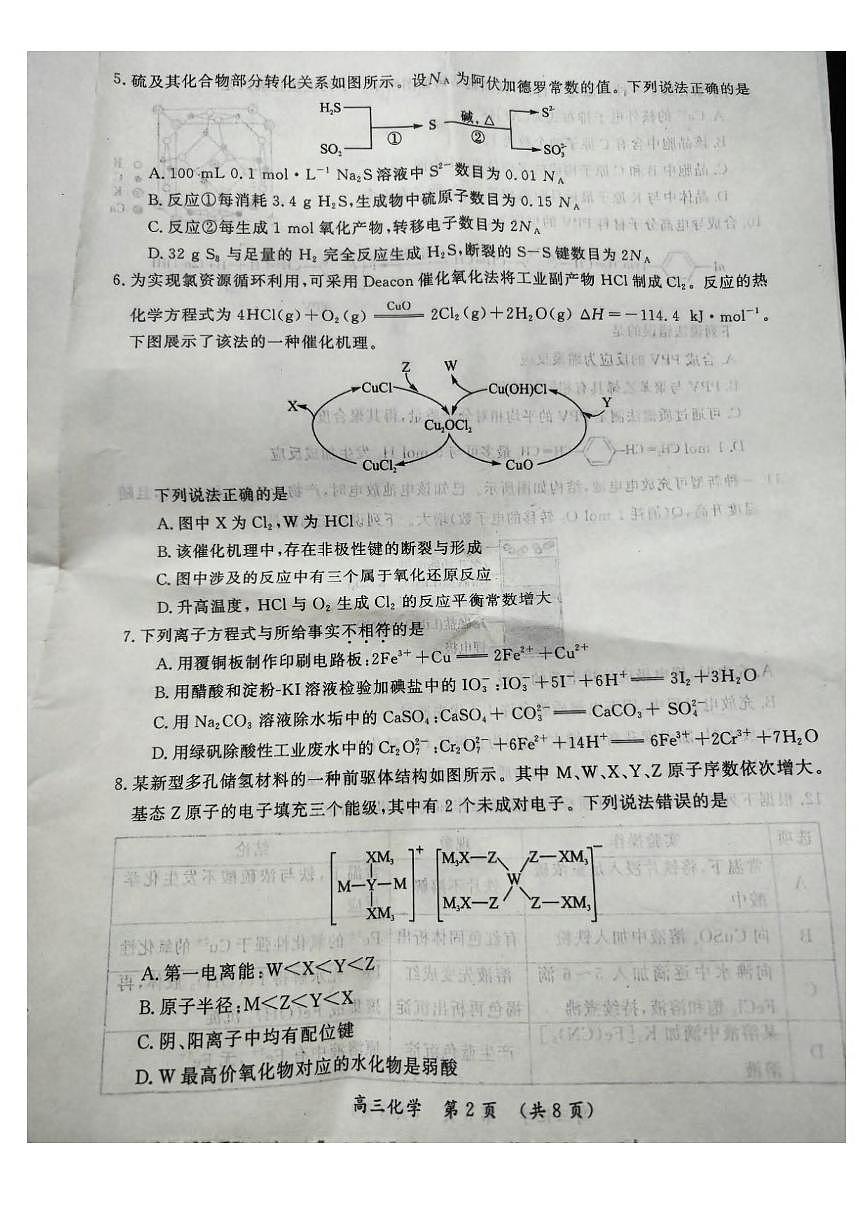 5.硫及其化合物部分转化关系如图所示。设NA为阿伏加德罗常数的值。下列说法正确的是
H₂S
SO₂
①
S
碱,△
②
S²⁻
SO₃²⁻
A.100 mL 0.1 mol·L⁻¹ Na₂S溶液中S²⁻数目为0.01 NA
B.反应①每消耗3.4 g H₂S,生成物中硫原子数目为0.15 NA
C.反应②每生成1 mol氧化产物,转移电子数目为2NA
D.32 g S₈与足量的H₂完全反应生成H₂S,断裂的S—S键数目为2NA
6.为实现氯资源循环利用,可采用Deacon催化氧化法将工业副产物HCl制成Cl₂。反应的热
化学方程式为4HCl(g)+O₂(g) ══CuO══ 2Cl₂(g)+2H₂O(g) ΔH=-114.4 kJ·mol⁻¹。
下图展示了该法的一种催化机理。
Z W
CuCl Cu(OH)Cl
X Y
Cu₂OCl₂
CuCl₂ CuO
下列说法正确的是
A.图中X为Cl₂,W为HCl
B.该催化机理中,存在非极性键的断裂与形成
C.图中涉及的反应中有三个属于氧化还原反应
D.升高温度,HCl与O₂生成Cl₂的反应平衡常数增大
7.下列离子方程式与所给事实不相符的是
A.用覆铜板制作印刷电路板:2Fe³⁺+Cu══2Fe²⁺+Cu²⁺
B.用醋酸和淀粉-KI溶液检验加碘盐中的IO₃⁻:IO₃⁻+5I⁻+6H⁺══3I₂+3H₂O
C.用Na₂CO₃溶液除水垢中的CaSO₄:CaSO₄+CO₃²⁻══CaCO₃+SO₄²⁻
D.用绿矾除酸性工业废水中的Cr₂O₇²⁻:Cr₂O₇²⁻+6Fe²⁺+14H⁺══6Fe³⁺+2Cr³⁺+7H₂O
8.某新型多孔储氢材料的一种前驱体结构如图所示。其中M、W、X、Y、Z原子序数依次增大。
基态Z原子的电子填充三个能级,其中有2个未成对电子。下列说法错误的是
XM₃ + M₃X—Z Z—XM₃ −
M—Y—M W
XM₃ M₃X—Z Z—XM₃
A.第一电离能:W<X<Y<Z
B.原子半径:M<Z<Y<X
C.阴、阳离子中均有配位键
D.W最高价氧化物对应的水化物是弱酸
高三化学 第2页 (共8页)